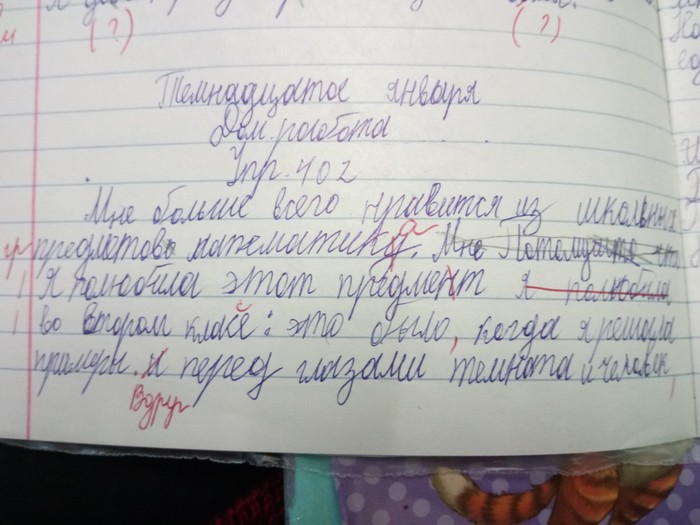 (?) (?)
Темнадцатое января
Дом. работа
Упр. 402
Мне больше всего нравится из школьных
предметов математика. Мне Потому что
Я полюбила этот предмент я полюбила
во втором класе: это было, когда я решала
примеры. и перед глазами темнота и человек,
Вдруг